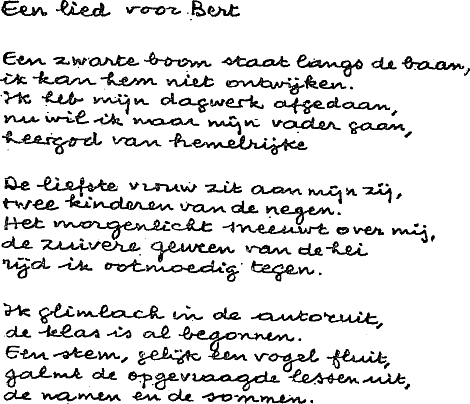 Een lied voor Bert
Een zwarte boom staat langs de baan,
ik kan hem niet ontwijken.
Ik heb mijn dagwerk afgedaan,
nu wil ik naar mijn vader gaan,
heergod van hemelrijke
De liefste vrouw zit aan mijn zij,
twee kinderen van de negen.
Het morgenlicht sneeuwt over mij,
de zuivere geuren van de hei
rijd ik ootmoedig tegen.
Ik glimlach in de autoruit,
de klas is al begonnen.
Een stem, gelijk een vogel fluit,
galmt de opgevraagde lessen uit,
de namen en de sommen.